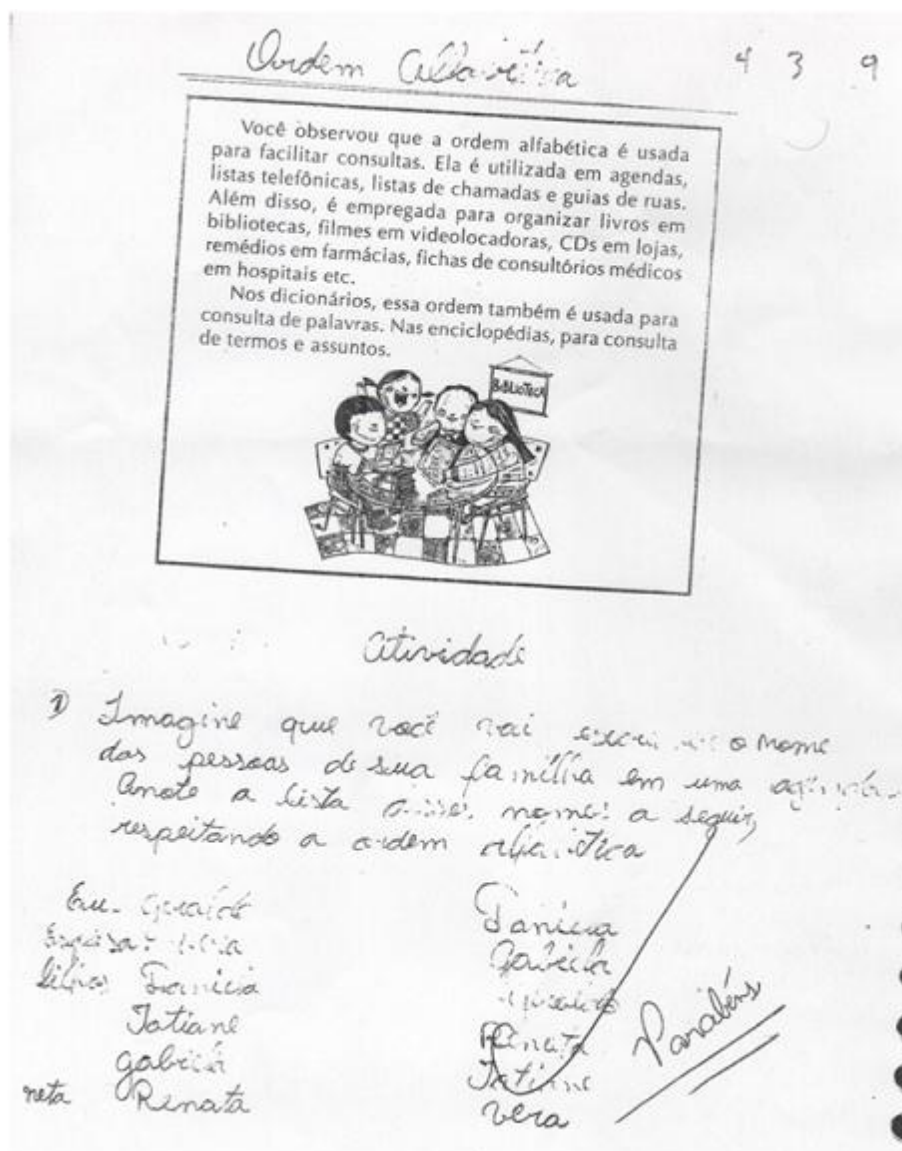 Ordem Alfabética
4 3 9
Você observou que a ordem alfabética é usada
para facilitar consultas. Ela é utilizada em agendas,
listas telefônicas, listas de chamadas e guias de ruas.
Além disso, é empregada para organizar livros em
bibliotecas, filmes em videolocadoras, CDs em lojas,
remédios em farmácias, fichas de consultórios médicos
em hospitais etc.
Nos dicionários, essa ordem também é usada para
consulta de palavras. Nas enciclopédias, para consulta
de termos e assuntos.
BIBLIOTECA
Atividade
1) Imagine que você vai o nome
das pessoas de sua família em uma
Anote a lista nomes a seguir,
respeitando a ordem alfabética
Eu. Geraldo
Esposa:
filhos
Tatiane
Gabriela
neta Renata
Gabriela
Geraldo
Renata
Tatiane
Vera
Parabéns